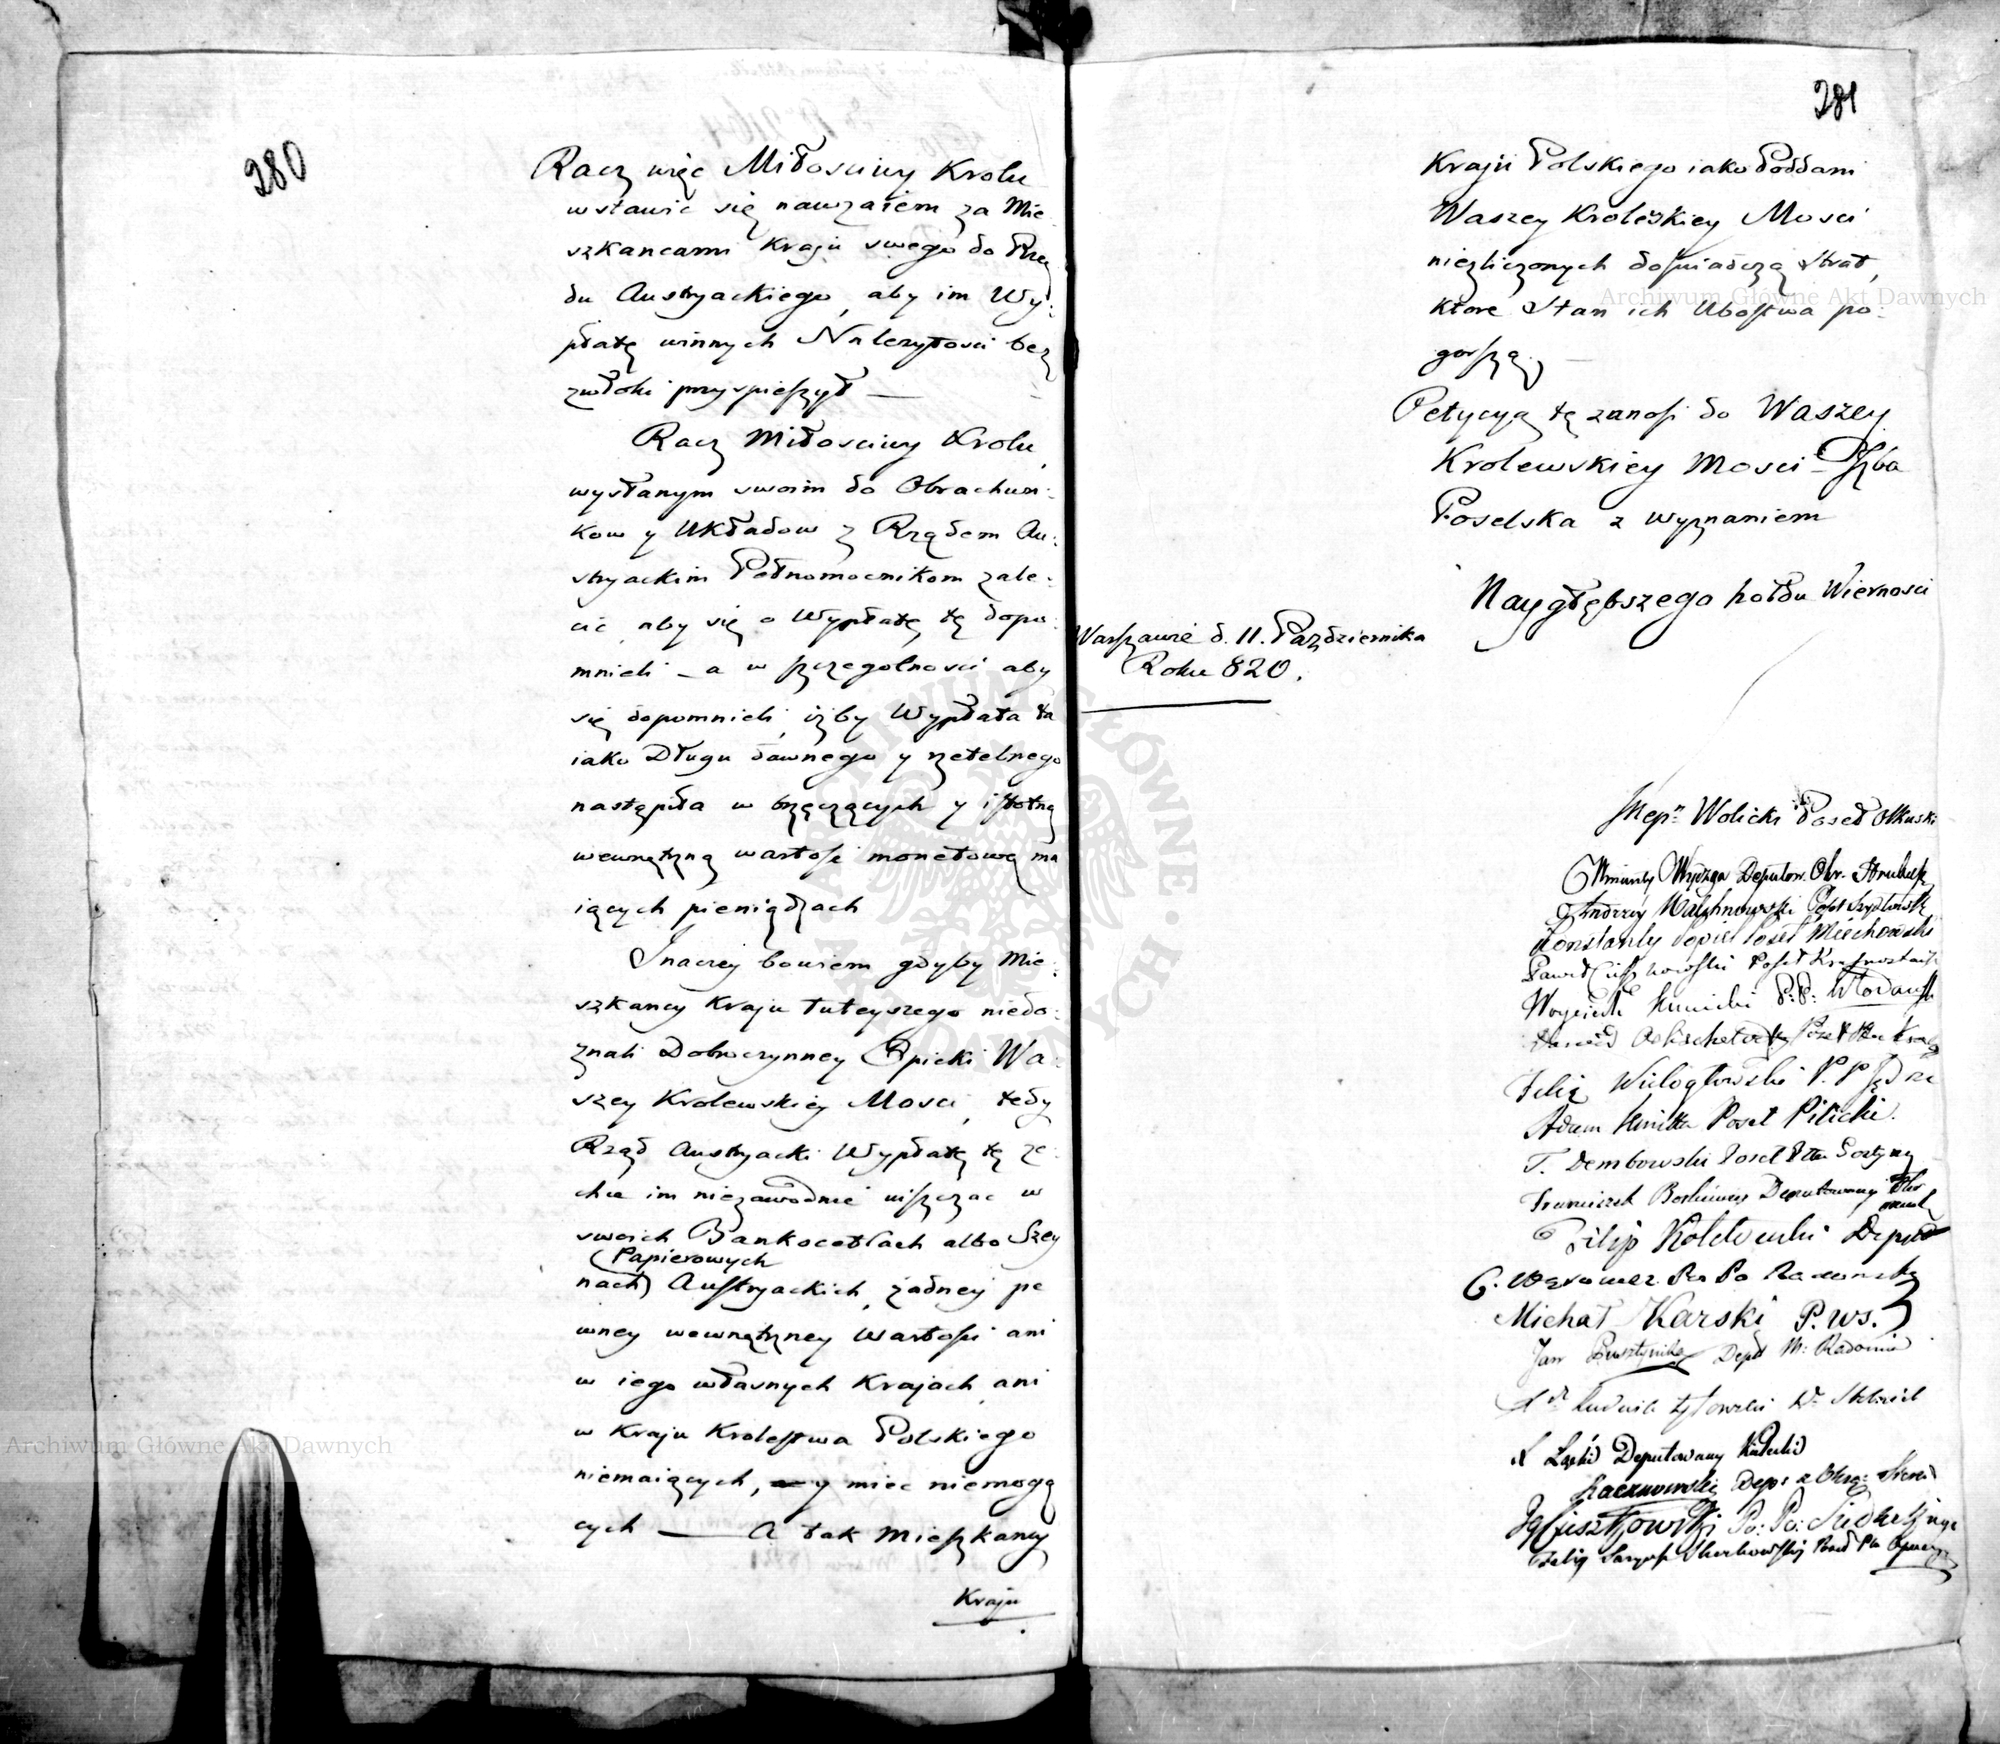 280
Racz więc Miłosciwy Krolu
wstawic się nawzaiem za Mie
szkancami Kraju swego do Rzą
du Austryackiego, aby im Wy:
płatę winnych Nalezytosci bez
zwłoki przyspieszył —
Racz Miłosciwy Krolu,
wysłanym swoim do Obrachun:
kow y Układow z Rządem Au:
stryackim Pełnomocnikom zale:
cic, aby się o Wypłatę tę dopo:
mnieli – a w szczegolnosci aby
się dopomnieli, iżby Wypłata ta
iako Długu dawnego y rzetelnego
nastąpiła w brzęczących y istotną
wewnętrzną wartosc monetową ma
iących pieniądzach
Inaczey bowiem gdyby Mie:
szkancy Kraju tuteyszego niedo:
znali Dobroczynney Opieki Wa:
szey Krolewskiey Mosci, tedy
Rząd Austryacki Wypłatę tę ze:
chce im niezawodnie uiszczac w
swoich Bankocetlach albo Szey
(Papierowych
nach) Austryackich, żadney pe
wney wewnętrzney Wartosci ani
w iego własnych Krajach, ani
w Kraju Krolestwa Polskiego
niemaiących, y miec niemogą
cych — A tak Mieszkancy
Kraju
281
Kraju Polskiego iako Poddani
Waszey Krolewskiey Mosci
niezliczonych doswiadczą strat,
ktore Stan ich Ubostwa po:
gorszą. —
Petycyą tę zanosi do Waszey
Krolewskiey Mosci – Izba
Poselska z wyznaniem
Naygłębszego hołdu Wiernosci
Warszawie d. 11. Pazdziernika
Roku 820.
Wolicki Poseł Olkuski
Wydzga Deputow. Obr. Hrubiesz
Andrzey Walchnowski Poseł Szydłowsk
Konstanty Popiel Poseł Miechowski
Paweł Poseł Krasnostaw
Woyciech P: P: Włodaws
Poseł
Felix Wielogłowski P. P.
Adam Poseł Pilicki.
T. Dembowski Poseł Ptu Gostyn
Franciszek Deputowany
Filip Deput
Po Radomski
Michał Karski P. ws.
Jan Pusztynika Dep M: Radomia
Ludwik
Łąski Deputowany
Kaczkowski Dep: z Okrę:
Po: Po:
Felix Saryusz Poseł Ptu Opoczy
Archiwum Główne Akt Dawnych
Archiwum Główne Akt Dawnych
ARCHIWUM GŁÓWNE AKT DAWNYCH